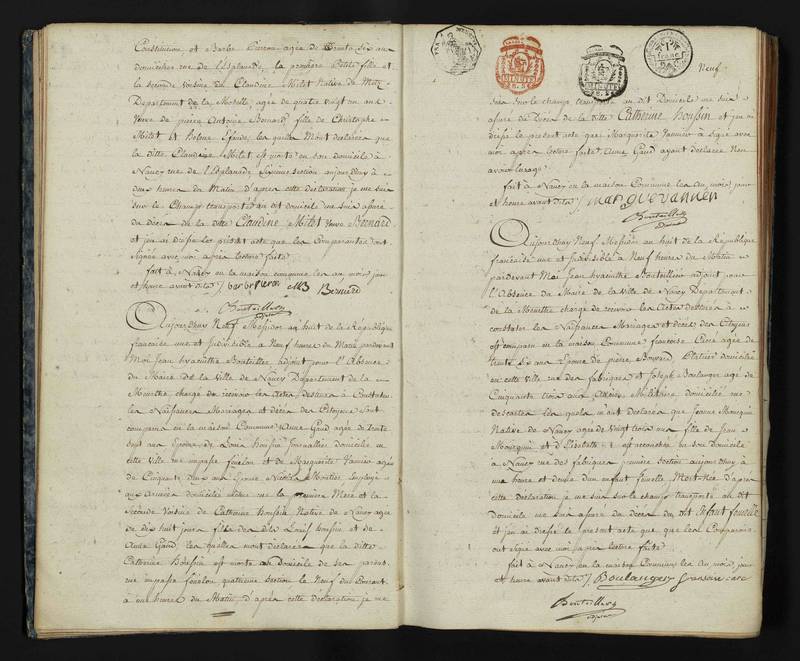 Constitution et Barbe Pierron agée de trente six ans
domiciliée rue de l'Esplanade, la première Petite fille et
la seconde voisine de Claudine Milet Native de Metz
Département de la Moselle, agée de quatre vingt un ans
Veuve de pierre Antoine Bernard fille de Christophe
Milet et Helene les quelles M'ont déclarées que
la ditte Claudine Milet est morte en son domicile à
Nancy rue de l'Esplanade section aujourd'huy à
deux heures du Matin, d'après cette déclaration je me suis
sur le Champ transporté au dit domicile me suis assuré
du décès de la ditte Claudine Milet veuve Bernard
et j'en ai dressé le présent acte que les Comparantes ont
Signés avec moi après lecture faite
fait à Nancy en la maison commune les an mois jour
et heure avant dits / barbe pieron MB Bernard
Bouteillier
adjoint
Aujourd'huy Neuf Messidor an huit de la République
française une et Indivisible à Neuf heures du Matin pardevant
Moi Jean hyacinthe Bouteillier adjoint pour l'Absence
du Maire de la ville de Nancy Département de la
Meurthe chargé de recevoir les Actes destinés à Constater
les Naissances Mariages et décès des Citoyens Sont
comparu en la maison Commune Anne Gand agée de trente
sept ans Epouse de Louis houssin Journallier domicilié en
cette Ville rue impasse foulon et de Marguerite Vannier agée
de Cinquante deux ans Epouse Nicolas Monties Employé
aux Armées domiciliée même rue la première Mere et la
Seconde Voisine de Catherine houssin Native de Nancy agée
de dix huit jours fille des dits Louis houssin et de
Anne Gand les quelles m'ont déclarées que la ditte
Catherine houssin est morte au domicile de ses parens
rue impasse foulon quatrième section le Neuf du Courant
à une heure du Matin, d'après cette déclaration je me
MINUTE
MINUTE
Neuf
suis sur le champ transporté au dit Domicile me suis
assuré du décès de la ditte Catherine houssin et j'en ai
dressé le présent acte que Marguerite Vannier à Signé avec
moi après lecture faite Anne Gand ayant déclarée Non
avoir l'usage
fait à Nancy en la maison Commune les an mois jour
et heure avant dits / marguevannier
Bouteillier
adjoint
Aujourd'huy Neuf Messidor an huit de la République
française une et Indivisible à Neuf heures du Matin
pardevant Moi Jean hyacinthe Bouteillier adjoint pour
l'Absence du Maire de la ville de Nancy Département
de la Meurthe chargé de recevoir les Actes destinés à
constater les Naissances Mariages et décès des Citoyens
est comparu en la maison Commune françoise Caré agée de
trente six ans Epouse de pierre Platrier domicilié
en cette ville rue des fabriques et Joseph Boulanger agé de
Cinquante trois ans Militaire domicilié rue
descartes les quels m'ont déclarés que Jeanne Mourquin
Native de Nancy agée de vingt trois ans fille de Jean
Mourquin et d'Elisabeth est accouchée en son domicile
à Nancy rue des fabriques première section aujourd'huy à
une heure et demie d'un enfant femelle Mort-Née d'après
cette déclaration je me suis sur le champ transporté au dit
Domicile me suis assuré du décès du dit Enfant femelle
et j'en ai dressé le présent acte que les Comparants
ont signé avec moi après lecture faite
fait à Nancy en la maison Commune les an mois jour
et heure avant dits / Boulanger fransoise caré
Bouteillier
adjoint